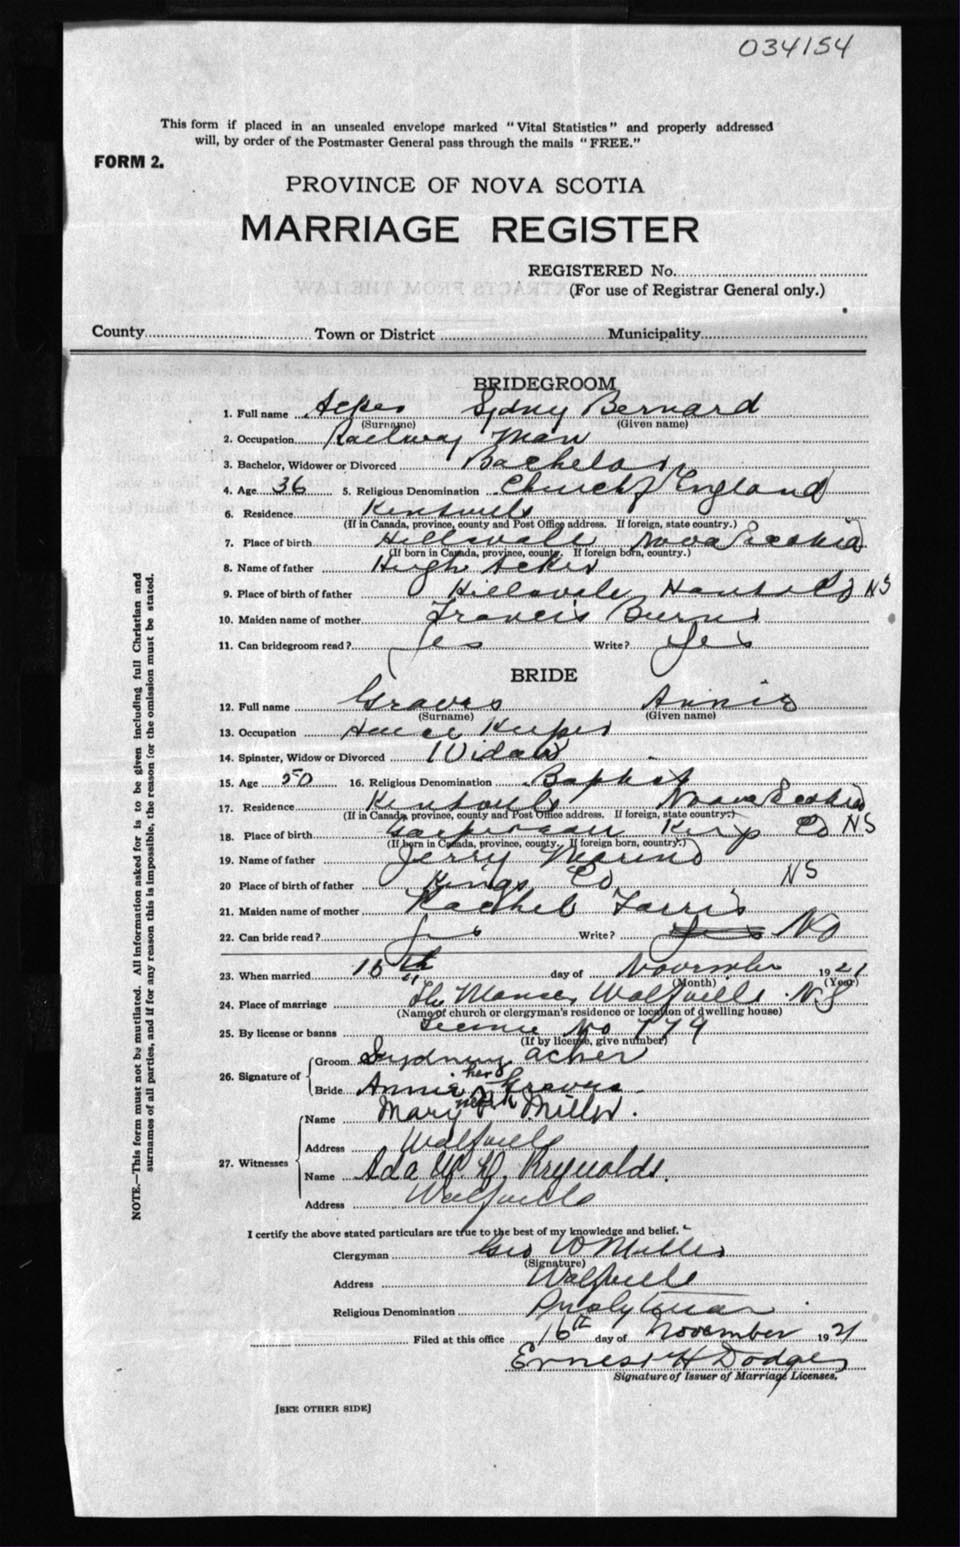 034154
This form if placed in an unsealed envelope marked "Vital Statistics" and properly addressed
will, by order of the Postmaster General pass through the mails "FREE."
FORM 2.
PROVINCE OF NOVA SCOTIA
MARRIAGE REGISTER
REGISTERED No.
(For use of Registrar General only.)
County Town or District Municipality
BRIDEGROOM
1. Full name Acker Sydney Bernard
(Surname) (Given name)
2. Occupation Railway Man
3. Bachelor, Widower or Divorced Bachelor
4. Age 36 5. Religious Denomination Church of England
6. Residence Kentville
(If in Canada, province, county and Post Office address. If foreign, state country.)
7. Place of birth Hillsvale Nova Scotia
(If born in Canada, province, county. If foreign born, country.)
8. Name of father Hugh Acker
9. Place of birth of father Hillsvale Hants Co NS
10. Maiden name of mother Francis Burns
11. Can bridegroom read? Yes Write? Yes
BRIDE
12. Full name Graves Annie
(Surname) (Given name)
13. Occupation House Keeper
14. Spinster, Widow or Divorced Widow
15. Age 50 16. Religious Denomination Baptist
17. Residence Kentville Nova Scotia
(If in Canada, province, county and Post Office address. If foreign, state country.)
18. Place of birth Kings Co NS
(If born in Canada, province, county. If foreign born, country.)
19. Name of father Jerry
20 Place of birth of father Kings Co NS
21. Maiden name of mother Rachel
22. Can bride read? Yes Write? Yes No
23. When married 15th day of November 1921
(Month) (Year)
24. Place of marriage The Manse, Wolfville NS
(Name of church or clergyman's residence or location of dwelling house)
25. By license or banns License No 779
(If by license, give number)
26. Signature of Groom Sydney Acker
Bride Annie her Graves
mark
27. Witnesses Name Mary Miller.
Address Wolfville
Name Ada Reynolds.
Address Wolfville
I certify the above stated particulars are true to the best of my knowledge and belief.
Clergyman Geo W Miller
(Signature)
Address Wolfville
Religious Denomination Presbyterian
Filed at this office 16th day of November 1921
Ernest H Dodge
Signature of Issuer of Marriage Licenses.
[SEE OTHER SIDE]
NOTE.—This form must not be mutilated. All information asked for is to be given including full Christian and
surnames of all parties, and if for any reason this is impossible, the reason for the omission must be stated.